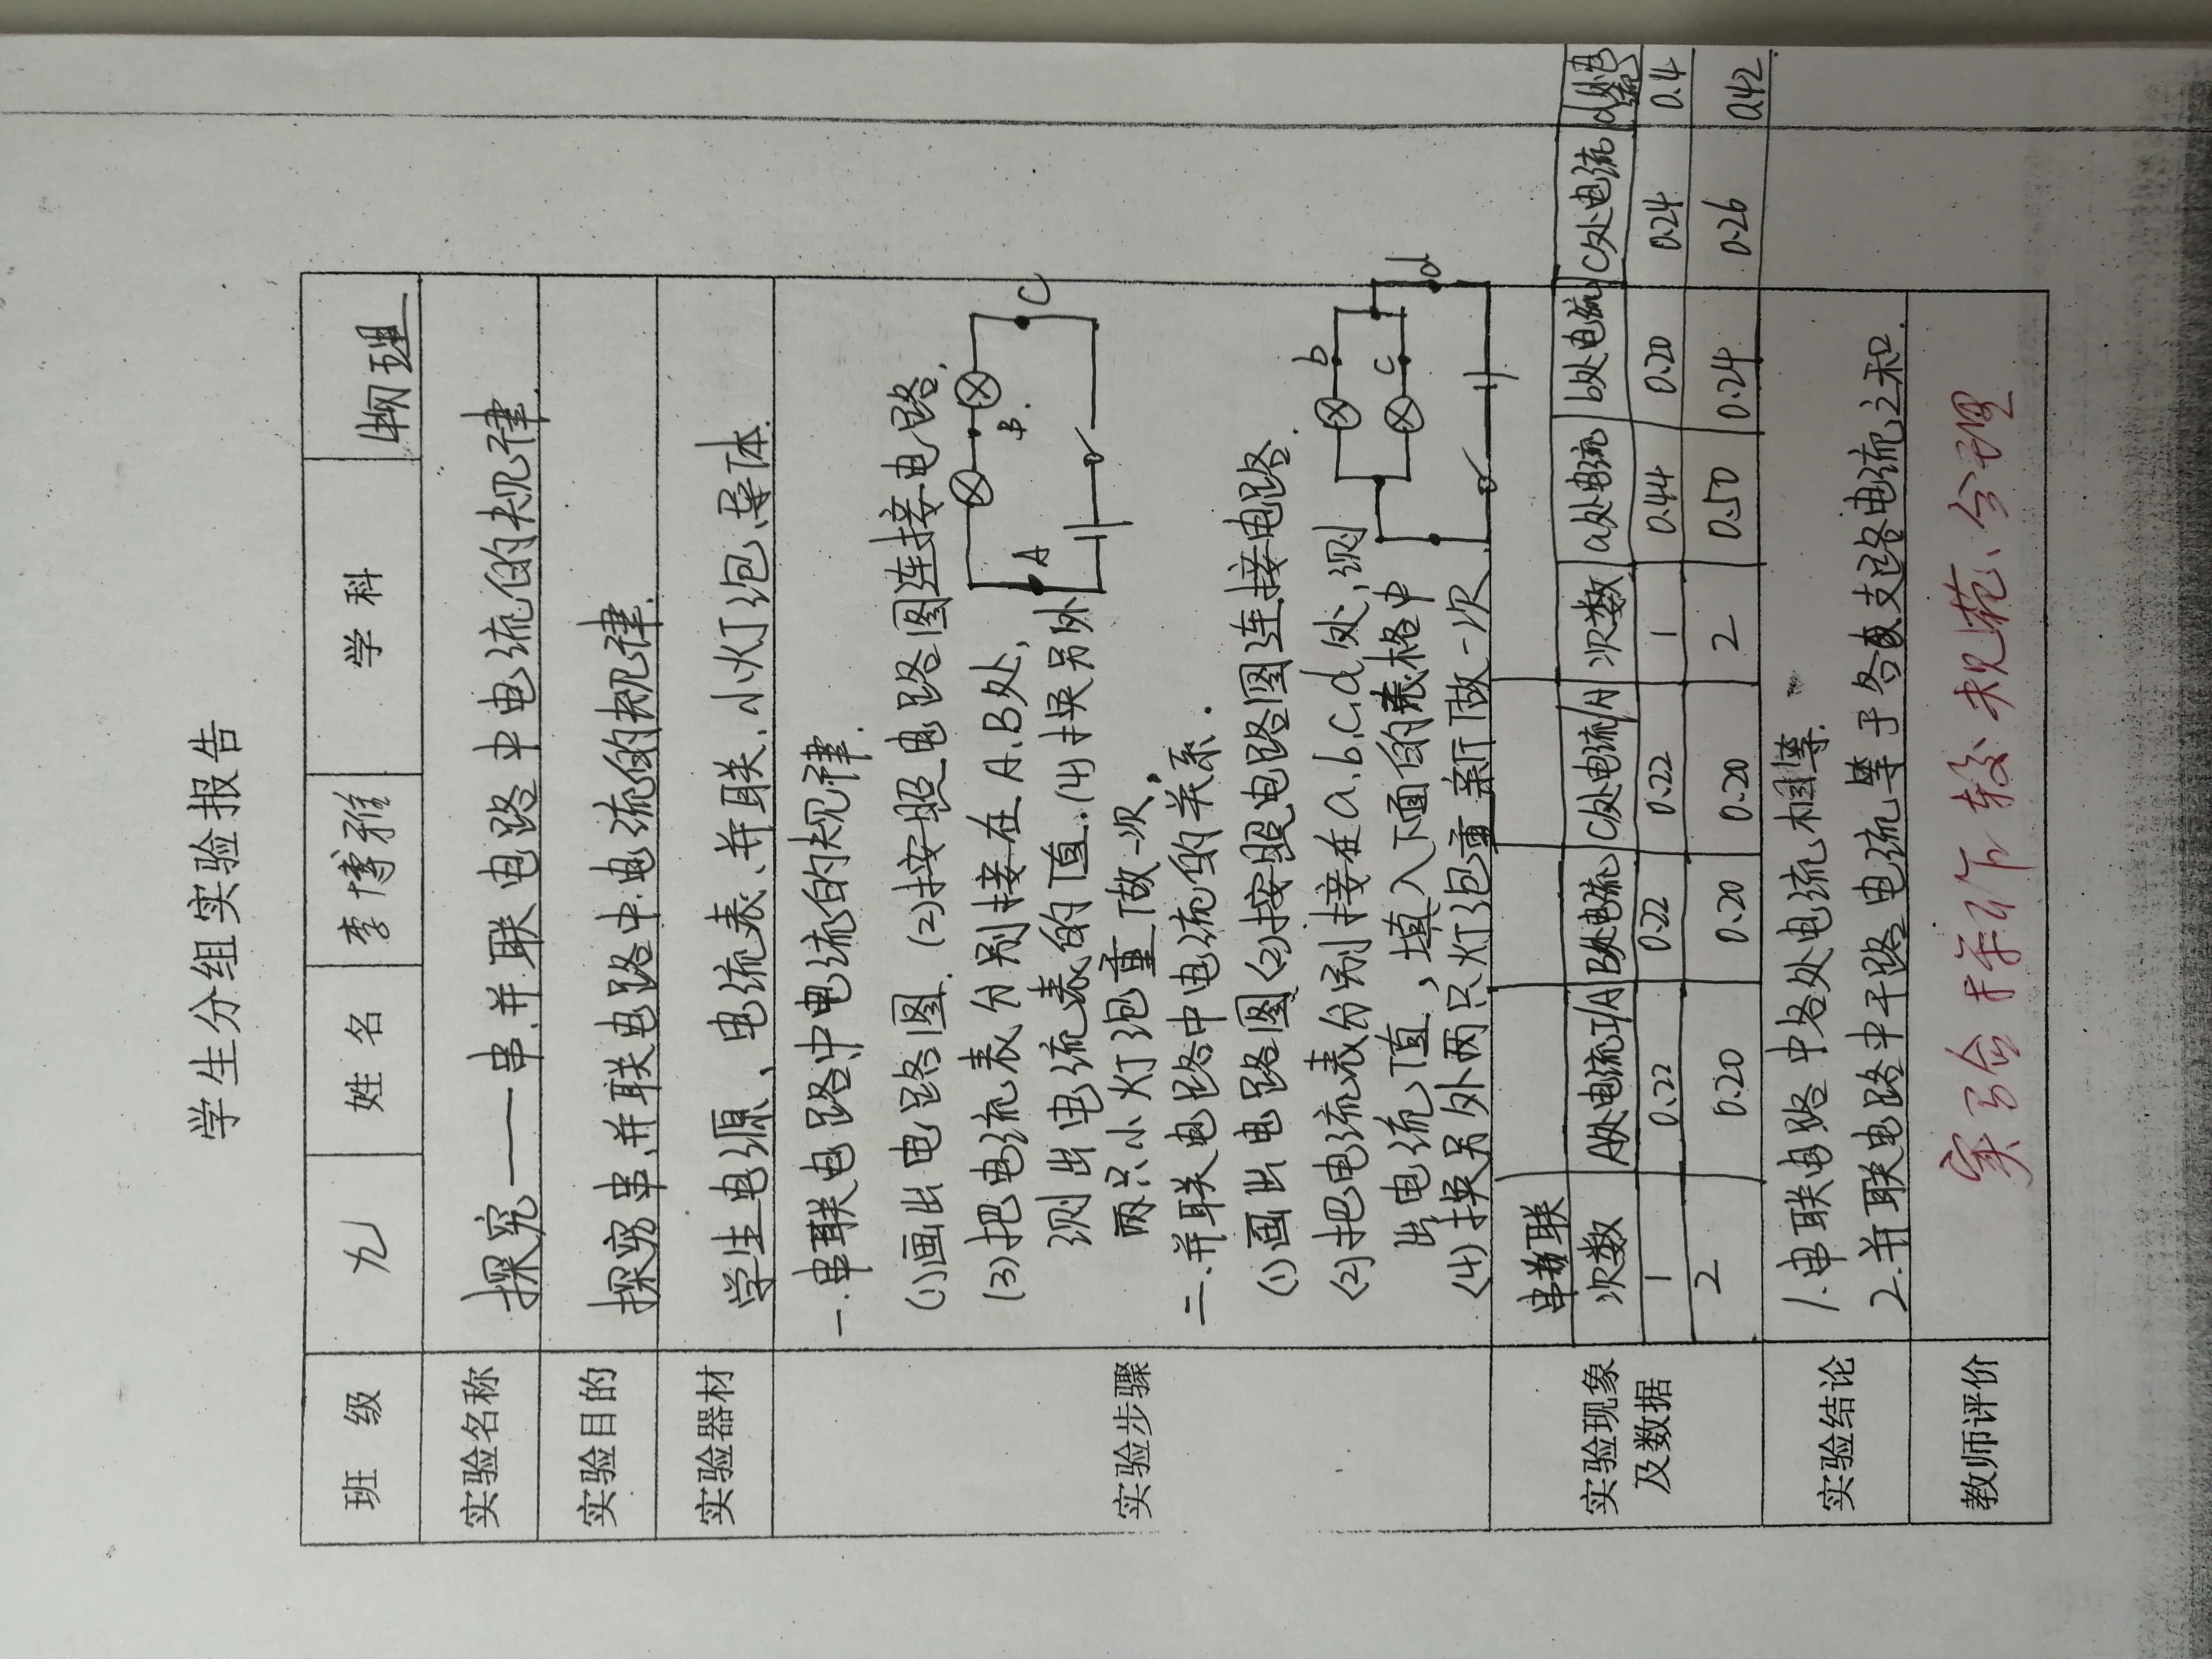 学生分组实验报告
班 级 九 姓 名 李博雅 学 科 物理
实验名称 探究——串.并联电路中电流的规律.
实验目的 探穷串.并联电路中电流的规律.
实验器材 学生电源、电流表、并联.小灯泡.导体.
实验步骤
一.串联电路中电流的规律.
(1)画出电路图. (2)按照电路图连接电路.
(3)把电流表分别接在A.B处,
测出电流表的值.(4)换另外
两只小灯泡重做一次,
A B C
二.并联电路中电流的关系.
(1)画出电路图(2)按照电路图连接电路.
(2)把电流表分别接在a.b.c.d处,测
出电流值,填入下面的表格中
(4)换另外两只灯泡重新做一次
b c d
实验现象及数据
串联
次数 A处电流I/A B处电流 C处电流/A 次数 a处电流 b处电流 C处电流 d处电流
1 0.22 0.22 0.22 1 0.44 0.20 0.24 0.4
2 0.20 0.20 0.20 2 0.50 0.24 0.26 0.42
实验结论
1.串联电路中各处电流相等.
2.并联电路中干路电流等于各支路电流之和.
教师评价 实验操作较规范、合理